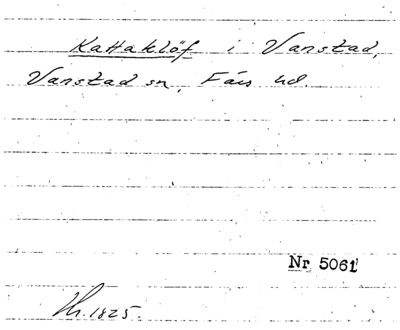 Kattaklöf i Vanstad,
Vanstad sn, Färs hd.
Nr 5061
Hr. 1825.